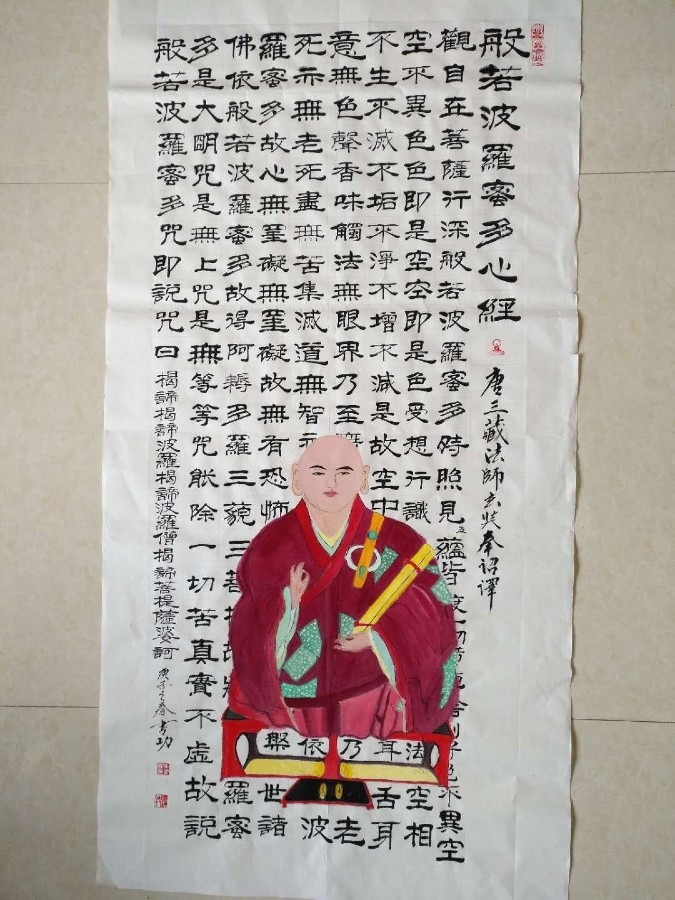 般若波羅蜜多心經
唐三藏法師玄奘奉詔譯
觀自在菩薩行深般若波羅蜜多時照見五蘊皆度一切苦厄舍利子色不異空
空不異色色即是空空即是色受想行識法空相
不生不滅不垢不淨不增不減是故空中耳舌身
意無色聲香味觸法無眼界乃至乃老
死亦無老死盡無苦集滅道無智亦依波
羅蜜多故心無罣礙無罣礙故無有恐怖槃世諸
佛依般若波羅蜜多故得阿耨多羅三藐三菩提故羅蜜
多是大明咒是無上咒是無等等咒能除一切苦真實不虛故說
般若波羅蜜多咒即說咒曰揭諦揭諦波羅揭諦波羅僧揭諦菩提薩婆訶
庚子之春書功